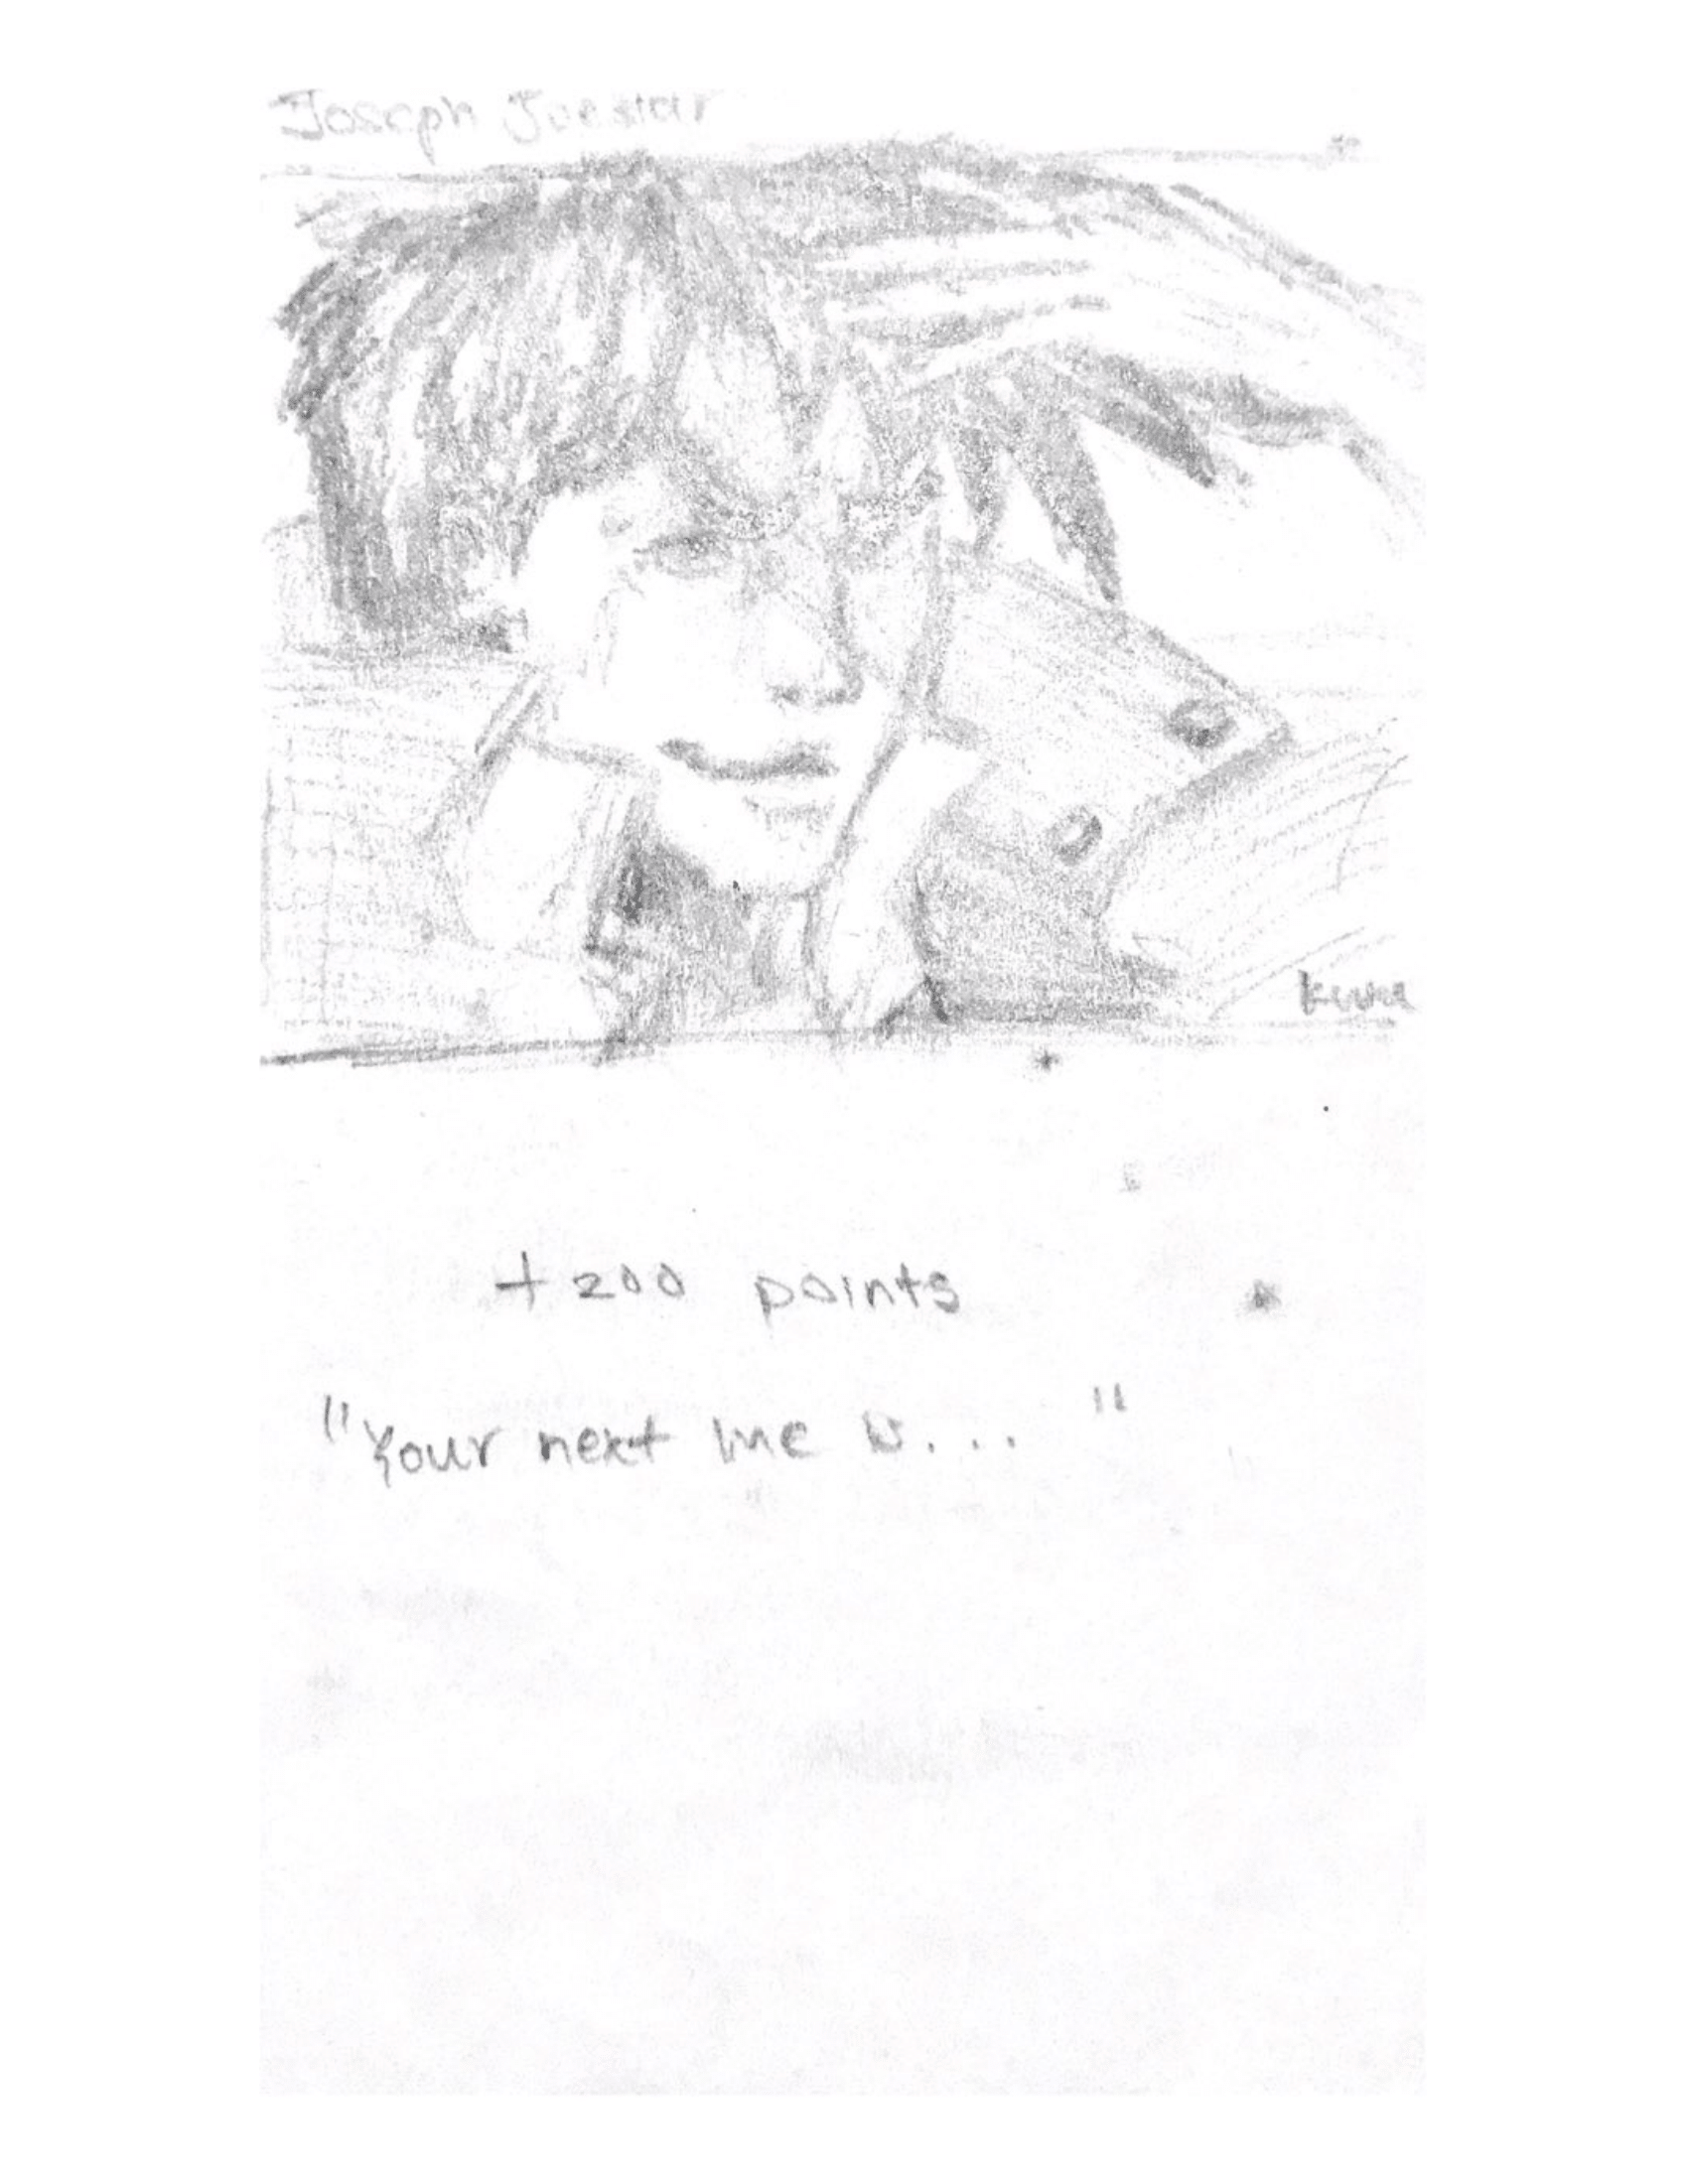 Joseph Joestar
+200 points
"Your next line is... "